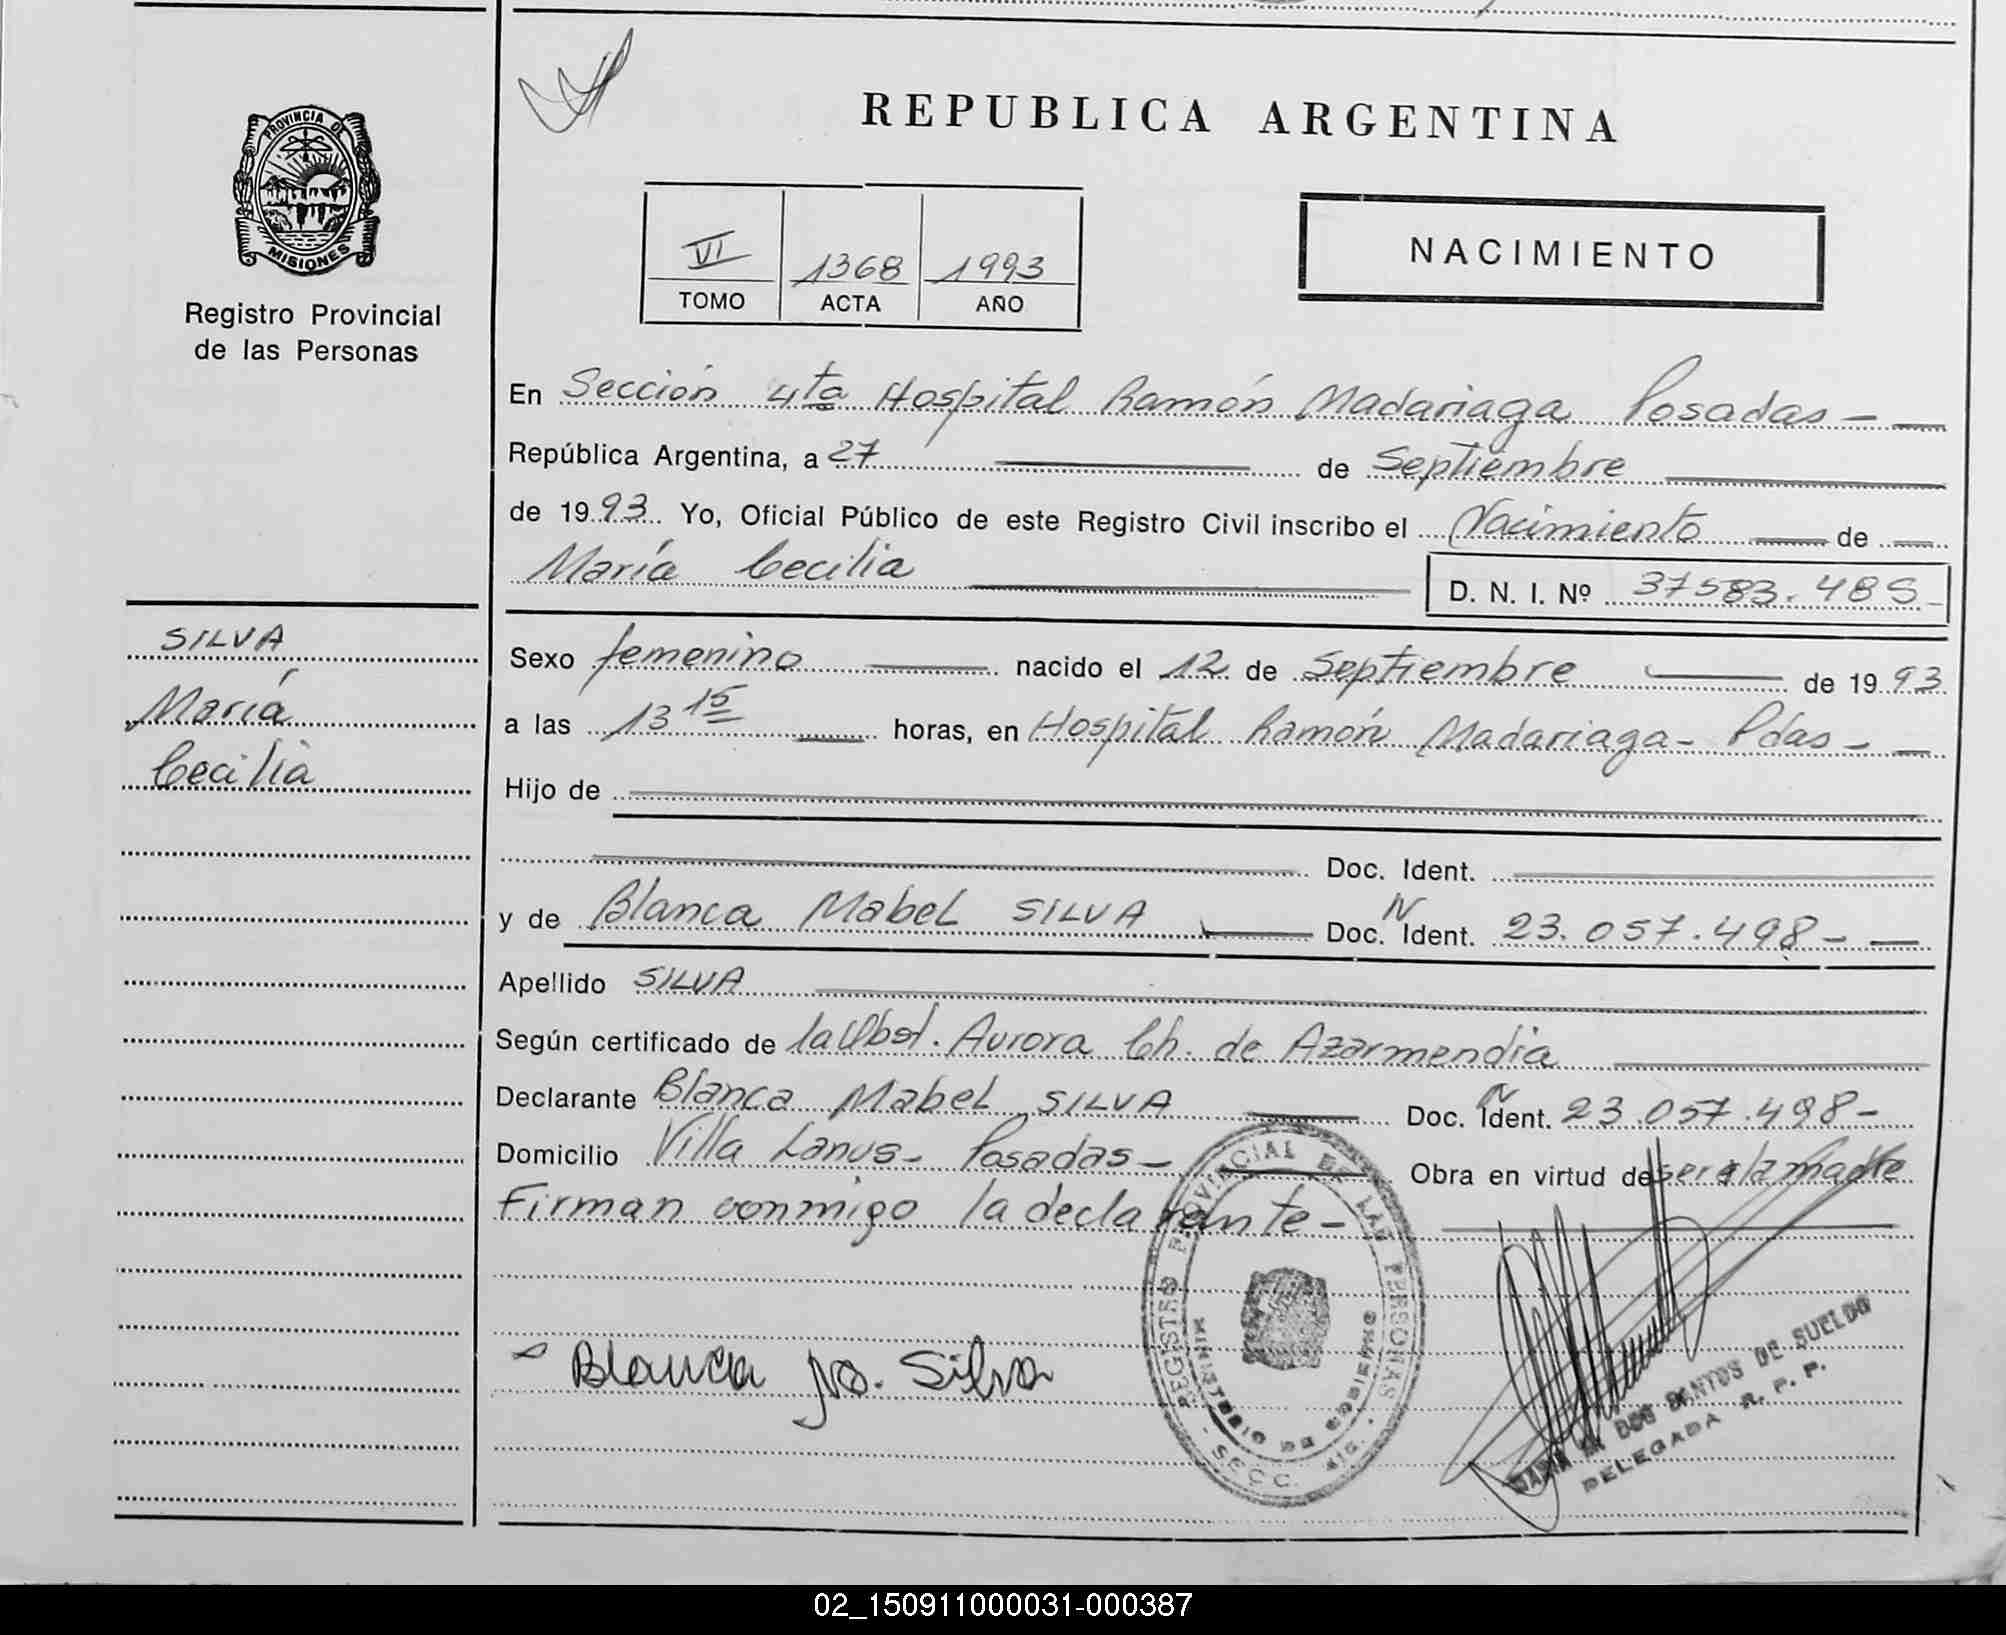 REPUBLICA ARGENTINA
PROVINCIA DE
MISIONES
Registro Provincial
de las Personas
VI 1368 1993
TOMO ACTA AÑO
NACIMIENTO
En Sección 4ta Hospital Ramón Madariaga Posadas —
República Argentina, a 27 de Septiembre
de 1993 Yo, Oficial Público de este Registro Civil inscribo el Nacimiento de
María Cecilia D. N. I. Nº 37583.485-
SILVA
María
Cecilia
Sexo femenino nacido el 12 de Septiembre de 1993
a las 13 15 horas, en Hospital Ramón Madariaga - Pdas -
Hijo de
Doc. Ident.
y de Blanca Mabel SILVA Doc. Ident. N 23.057.498-
Apellido SILVA
Según certificado de la Obst. Aurora Ch. de Azarmendia
Declarante Blanca Mabel SILVA Doc. Ident. N 23.057.498-
Domicilio Villa Lanus - Posadas - Obra en virtud de ser la madre
Firman conmigo la declarante -
Blanca Silva
REGISTRO PROVINCIAL DE LAS PERSONAS
MINISTERIO DE GOBIERNO
SECC.
DOS SANTOS DE SUELDO
DELEGADA R. P. P.
02_150911000031-000387